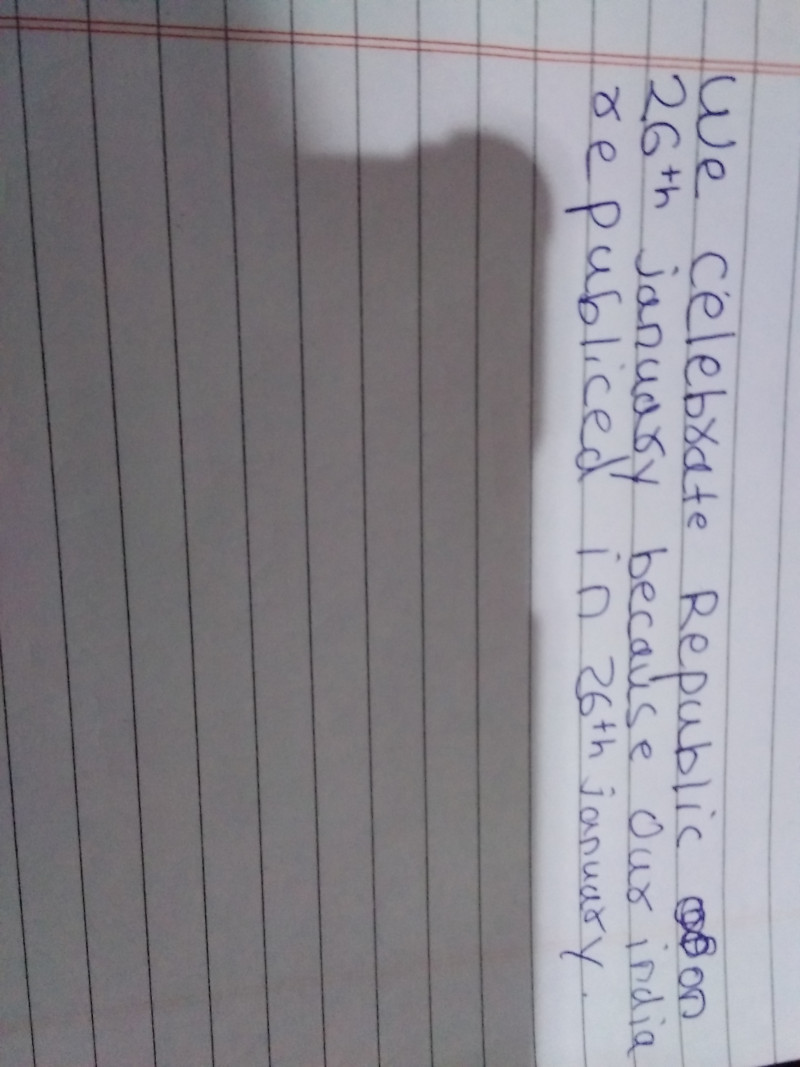 We Celebrate Republic on
26th january because Our india
republiced in 26th january.